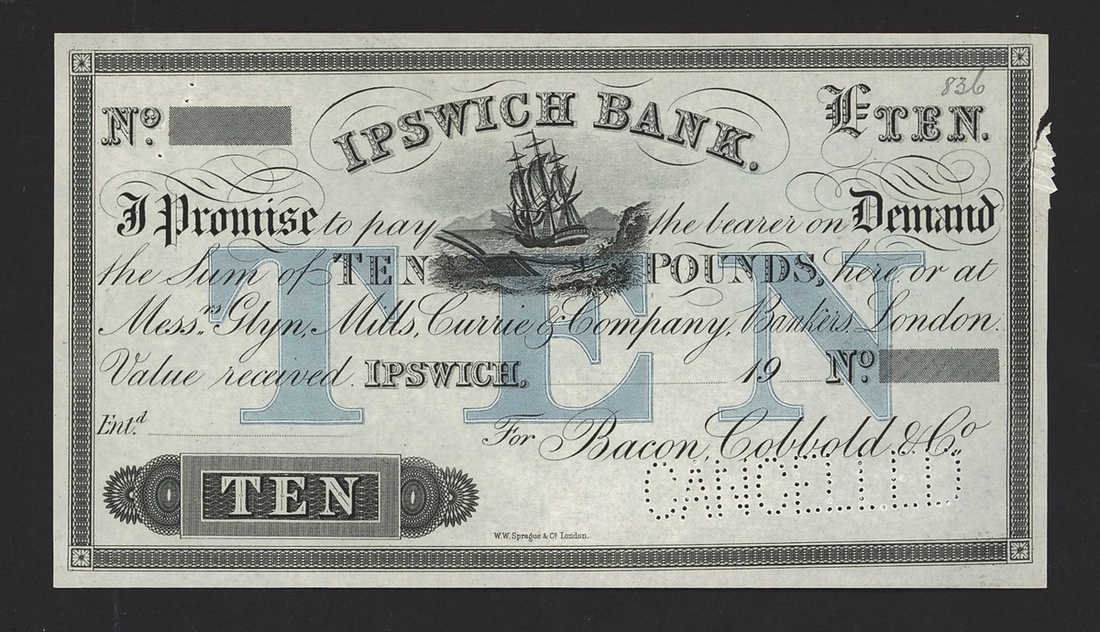 836
IPSWICH BANK.
Nº £TEN.
I Promise to pay the bearer on Demand
the Sum of TEN POUNDS, here or at
Mess.rs Glyn, Mills, Currie & Company, Bankers London.
Value received. IPSWICH, 19 Nº
Ent.d
For Bacon, Cobbold & Co.
TEN
CANCELLED
TEN
W.W. Sprague & Co. London.